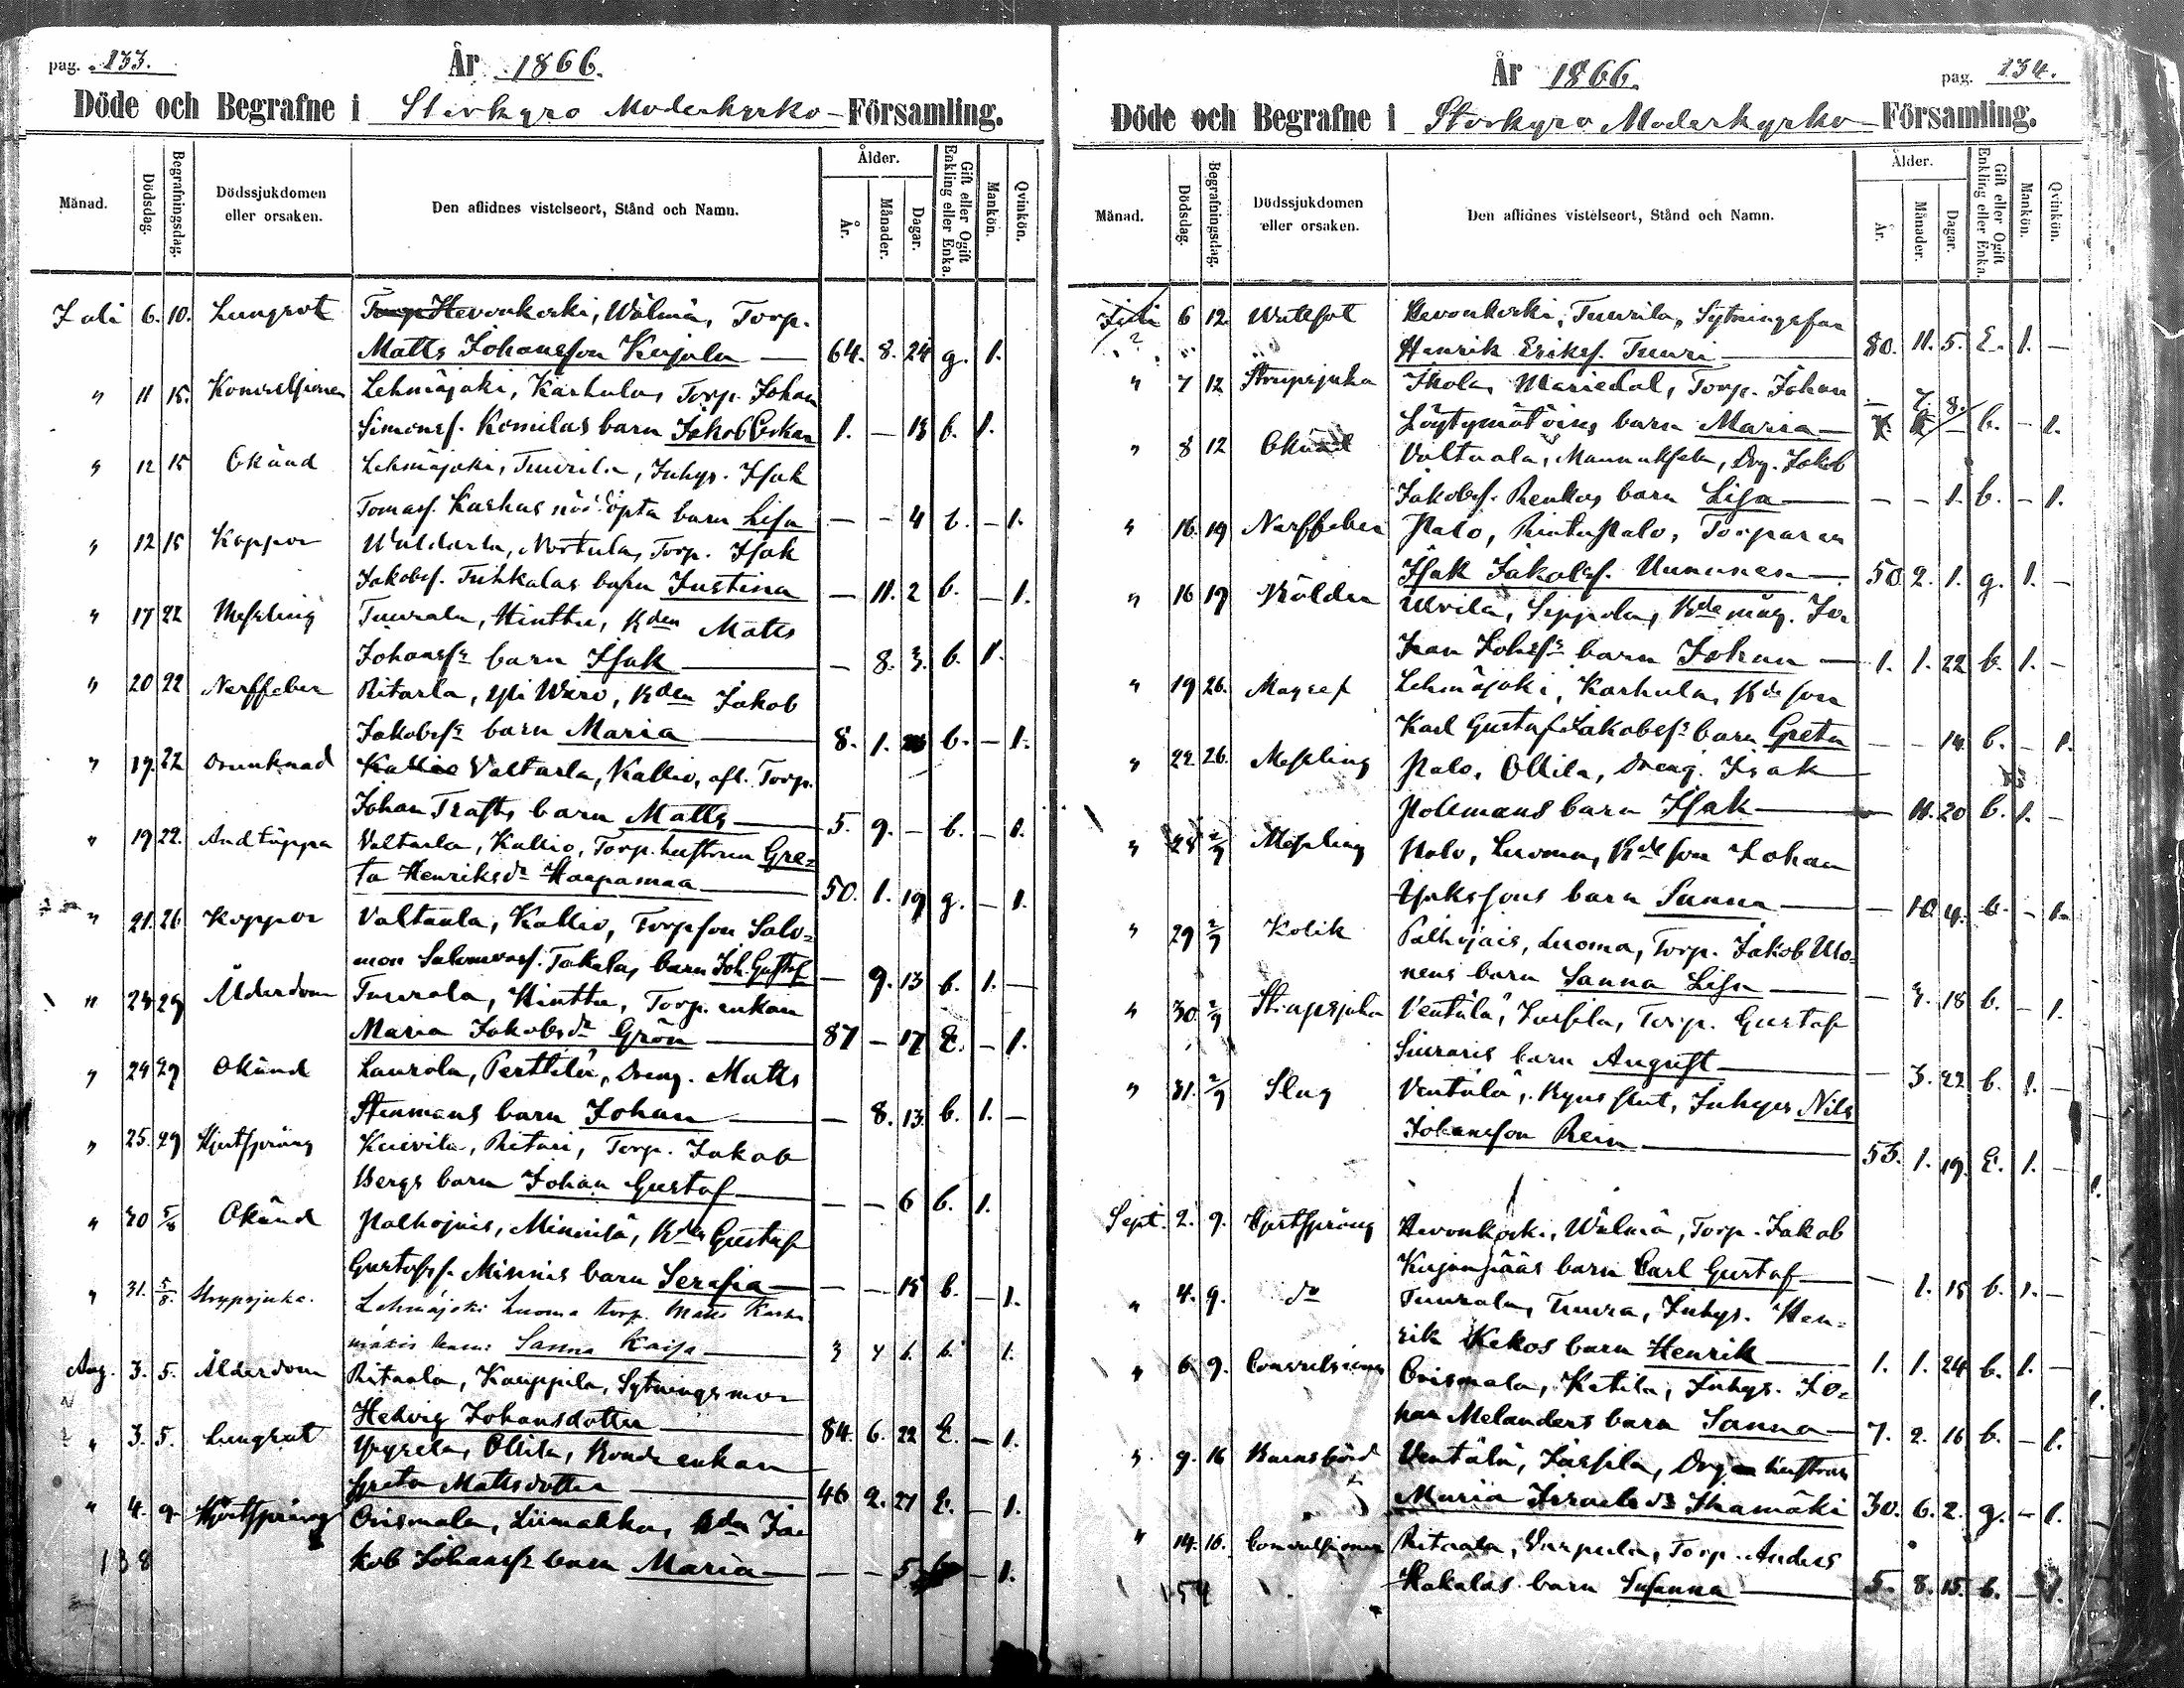 pag. 133.
År 1866.
Döde och Begrafne i Storkyro Moderkyrko-Församling.
Månad. Dödsdag. Begrafningsdag. Dödssjukdomen eller orsaken. Den aflidnes vistelseort, Stånd och Namn. Ålder. År. Månader. Dagar. Gift eller Ogift Enkling eller Enka. Mankön. Qvinkön.
Juli 6. 10. Lungsot Hevonkoski, Wälmä, Torp.
Matts Johansson Kujala — 64. 8. 24 g. 1.
" 11 15. Konvulsioner Lehmäjoki, Karhula, Torp. Johan
Simonss. Komilas barn Jakob Oskar 1. — 13 b. 1.
" 12 15 Okänd Lehmäjoki, Tuurila, Inhys. Isak
Tomass. Karhus nöddöpta barn Lisa — — 4 b. — 1.
" 12 15 Koppor Waldarla, Nortula, Torp. Isak
Jakobss. Tuhkalas barn Justina — 11. 2 b. — 1.
" 17 22 Messling Tuurala, Hinttu, Bden Matts
Johanss:s barn Isak — 8. 3. b. 1.
" 20 22 Nerffeber Ritarla, Yli Wäro, Bden Jakob
Jakobss:s barn Maria — 8. 1. b. — 1.
" 19. 22 Drunknad Valtarla, Kallio, afl. Torp.
Johan Trafts barn Matts — 5. 9. — b. — 1.
" 19 22. Andtäppa Valtarla, Kallio, Torp. hustrun Gre=
ta Henriksdr Haapamaa — 50. 1. 19 g. — 1.
" 21. 26 Koppor Valtaala, Kallio, Torpson Salo=
mon Salomonss. Takala, barn Joh. Gustaf — 9. 13 b. 1. —
" 24 29 Ålderdom Tuurala, Hinttu, Torp. enkan
Maria Jakobsdr Grön — 87 — 17 E. — 1.
" 24 29 Okänd Laurola, Perttilä, Dreng. Matts
Stenmans barn Johan — — 8. 13. b. 1. —
" 25. 29 Hjertsprång Kuivila, Ritari, Torp. Jakob
Bergs barn Johan Gustaf — — — 6 b. 1.
" 30 5/8 Okänd Palhojais, Minnilä, Bden Gustaf
Gustafss. Minnis barn Serafia — — — 15 b. — 1.
" 31. 5/8. Strypsjuka. Lehmäjoki Luoma torp. Matts Karhu
mäkis barn: Sanna Kaisa — 3 4 6. b. 1.
Aug. 3. 5. Ålderdom Ritaala, Kauppila, Sytningsmor
Hedvig Johansdotter — 84. 6. 22 E. — 1.
" 3. 5. Lungsot Yryselä, Ollila, Bonde enkan
Greta Mattsdotter — 46 2. 27 E. — 1.
" 4. 9. Hjertsprång Orismala, Liimakka, Bden Ja
kob Johanss:s barn Maria — — — 5. b — 1.
138
År 1866. pag. 134.
Döde och Begrafne i Storkyro Moderkyrko-Församling.
Månad. Dödsdag. Begrafningsdag. Dödssjukdomen eller orsaken. Den aflidnes vistelseort, Stånd och Namn. Ålder. År. Månader. Dagar. Gift eller Ogift Enkling eller Enka. Mankön. Qvinkön.
Juli 6 12 Wattsot Hevonkoski, Tuurila, Sytningsfar
Henrik Erikss. Tuuri — 80. 11. 5. E. 1. —
" 7 12 Strypsjuka Ikola, Mariedal, Torp. Johan
Löytymäföins barn Maria — — 7. 8. b. — 1.
" 8 12 Okänd Valtaala, Mannuksela, Drg. Jakob
Jakobss. Renkos barn Lisa — — — 1. b. — 1.
" 16. 19 Nerffeber Palo, Rintapalo, Torparen
Isak Jakobss. Ununen — 50. 2. 1. g. 1. —
" 16 19 Bölder Ulvila, Seppola, Bde måg. Jo
han Johss:s barn Johan — 1. 1. 22 b. 1. —
" 19 26. Magref Lehmäjoki, Karhula, Bde son
Karl Gustaf Jakobss:s barn Greta — — 14 b. — 1.
" 22. 26. Messling Palo, Ollila, Dreng. Isak
Polemans barn Isak — — 11. 20 b. 1. —
" 28 2/9 Messling Palo, Luoma, Bde son Johan
barn Sanna — — 10. 4. b. — 1.
" 29 2/9 Kolik Palhojais, Luoma, Torp. Jakob Ulo=
nens barn Sanna Lisa — — 3. 18 b. — 1.
" 30 2/9 Strupsjuka Ventälä, Jussila, Torp. Gustaf
barn August — — 3. 22 b. 1. —
" 31. 2/9 Slag Ventälä, Inhyses Nils
Johansson Rein — 53. 1. 19. E. 1. —
Sept. 2. 9. Hjertsprång Hevonkoski, Wälmä, Torp. Jakob
Kujanpääs barn Carl Gustaf — — 1. 15 b. 1. —
" 4. 9. do Tuurala, Tuura, Inhys. Hen=
rik Kekos barn Henrik — 1. 1. 24 b. 1. —
" 6. 9. Convulsioner Orismala, Ketila, Inhys. Jo=
han Melanders barn Sanna — 7. 2. 16 b. — 1.
" 9. 16 Barnsbörd Ventälä, Jussila, Drg hustrun
Maria Israelsdr Ihamäki 30. 6. 2. g. — 1.
" 14. 16. Convulsioner Ritaala, Varpula, Torp. Anders
Hakalas barn Susanna — 5. 8. 15. b. — 1.
154